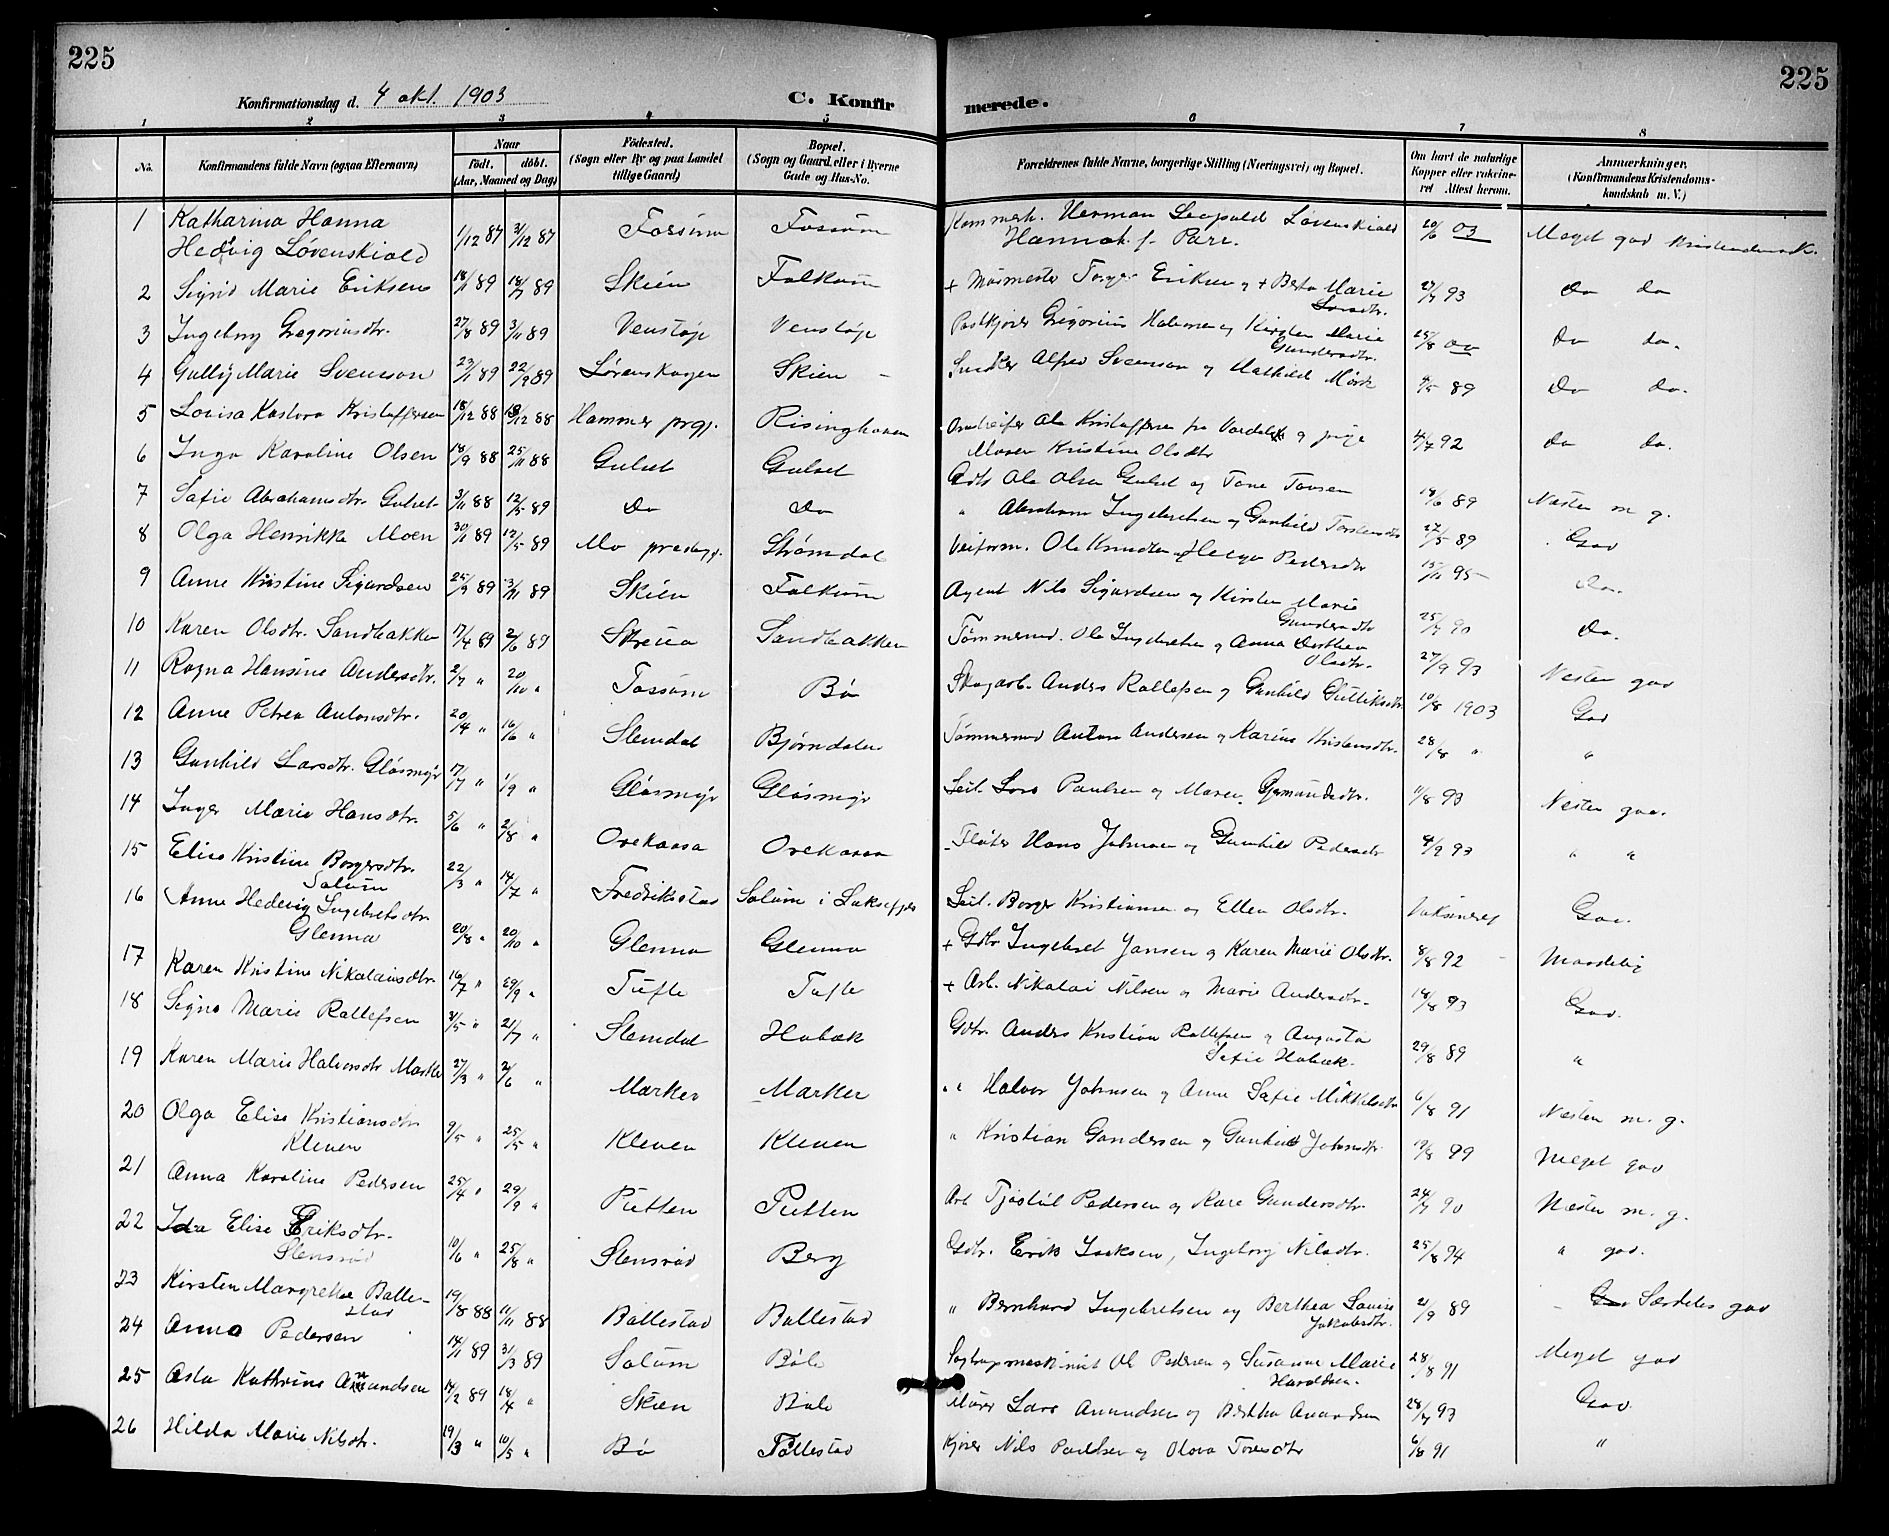 225
225
Konfirmationsdag d. 4 okt. 1903 C. Konfir merede.
1 2 3 4 5 6 7 8
No. Konfirmandens fulde Navn (ogsaa Efternavn) Naar født. døbt. (Aar, Maaned og Dag) Fødested. (Sogn eller By og paa Landet tillige Gaard) Bopæl. (Sogn og Gaard, eller i Byerne Gade og Hus-No. Forældrenes fulde Navne, borgerlige Stilling (Næringsvei) og Bopæl. Om havt de naturlige Kopper eller vakcineret Attest herom. Anmærkninger. (Konfirmandens Kristendomskundskab m. V.)
1 Katharina Hanna Hedvig Løvenskiold 1/12 87 31/12 87 Fossum Fossum Kammerh. Herman Leopold Løvenskiold Hannah f. Parr. 20/6 03 Meget god Kristendomsk.
2 Sigrid Marie Eriksen 18/1 89 18/7 89 Skien Falkum + Murmester Eriksen og + Berta Marie Larsdtr. 93 do do
3 Ingeborg Gregoriusdtr. 27/8 89 3/11 89 Venstøp Venstøp Postkjører Gregorius Halvorsen og Kirsten Marie Gundersdtr. 25/8 00 do do.
4 Gully Marie Svensson 23/1 89 22/9 89 Lørenskogen Skien Snedker Alfred Svensson og Mathild Mörk 89 do do.
5 Lovisa Kristoffersen 18/12 88 88 Hammer prgj. Risinghaven Omstreifer Ole Kristoffersen fra Vardal og pige Maren Kristine Olsdtr 4/7 92 do do.
6 Inga Karoline Olsen 18/9 88 25/11 88 Gulset Gulset Gdbr Ole Olsen Gulset og Tone Tovsen 14/6 89 Næsten m. g.
7 Sofie Abrahamsdtr. Gulset 3/11 88 12/5 89 do do " Abraham Ingebretsen og Gunhild Torstensdtr 22/5 89 God
8 Olga Henrikke Moen 30/1 89 12/5 89 Mo prestegj. Strømdal Veiform. Ole Knudsen og Helga Pedersdtr 15/11 95 do.
9 Anne Kristine Sigurdsen 25/9 89 3/11 89 Skien Falkum Agent Nils Sigurdsen og Kirsten Marie Gundersdtr 25/7 90 do.
10 Karen Olsdtr. Sandbakken 17/4 89 2/6 89 Skreua Sandbakken Tømmermd. Ole Ingebretsen og Anna Dorthea Olsdtr. 27/9 93 Næsten god
11 Ragna Hansine Andersdtr. 2/7 " 20/10 " Fossum Bø Skogarb. Anders Rollefsen og Gunhild Gulliksdtr 10/8 1903 God
12 Anne Petrea Antonsdtr. 20/4 " 16/6 " Slemdal Bjørndalen Tømmermd Anton Andersen og Karine Kristensdtr. 28/8 " "
13 Gunhild Larsdtr. Glåsmyr 17/7 " 1/9 " Glåsmyr Glåsmyr Leil. Lars Paulsen og Maren Gjermundsdtr. 11/8 93 Næsten god.
14 Inger Marie Hansdtr. 5/6 " 2/8 " Orekaasa Orekaasa Fløter Hans Johnsen og Gunhild Pedersdtr 4/9 93 " "
15 Elise Kristine Borgersdtr. Solum 22/3 " 14/7 " Fredrikstad Solum i Luksefjel Leil. Borger Kristiansen og Ellen Olsdtr. Vaksineret God.
16 Anne Hedevig Ingebretsdtr Glenna 20/8 " 20/10 " Glenna Glenna + Gdbr Ingebret Jansen og Karen Marie Olsdtr. 8/8 92 Maadelig
17 Karen Kristine Nikolaiusdtr. 16/7 " 29/9 " Tufte Tufte + Arb. Nikolai Nilsen og Marie Andersdtr. 14/8 93 God.
18 Signe Marie Rollefsen 3/5 " 21/7 " Slemdal Hobæk Gdbr. Anders Kristian Rollefsen og Augusta Sofie Hobæk. 29/8 89 "
19 Karen Marie Halvorsdtr Marker 27/3 " 2/6 " Marker Marker " Halvor Johnsen og Anne Sofie Mikkelsdtr 6/8 91 Næsten m. g.
20 Olga Elise Kristiansdtr Kleven 9/5 " 25/5 " Kleven Kleven " Kristian Gundersen og Gunhild Johnsdtr 19/8 99 Meget god
21 Anna Karoline Pedersen 25/4 " 29/9 " Pütten Pütten Arb Tjøstul Pedersen og Kare Gundersdtr. 24/7 90 Næsten m. g.
22 Ida Elise Eriksdtr. Slensrød 10/6 " 25/8 " Slensrød Berg Gdbr. Erik Isaksen, Ingeborg Nilsdtr. 25/8 94 " god.
23 Kirsten Margrethe Ballestad 19/8 88 11/11 88 Ballestad Ballestad " Bernhard Ingebretsen og Berthea Lovise Jakobsdtr. 21/9 89 Særdeles god
24 Anna Pedersen 14/1 89 31/3 89 Solum Bøle Ol. Pedersen og Susanne Marie Haraldsen. 28/8 91 Meget god
25 Asta Kathrine Amundsen 14/2 89 18/4 " Skien Bøle Murer Lars Amundsen og Berthea Amundsen 28/7 93 God.
26 Hilda Marie Nilsdtr. 19/3 " 10/5 " Bø Follestad Kjører Nils Paulsen og Olava Toresdtr 6/8 91 "